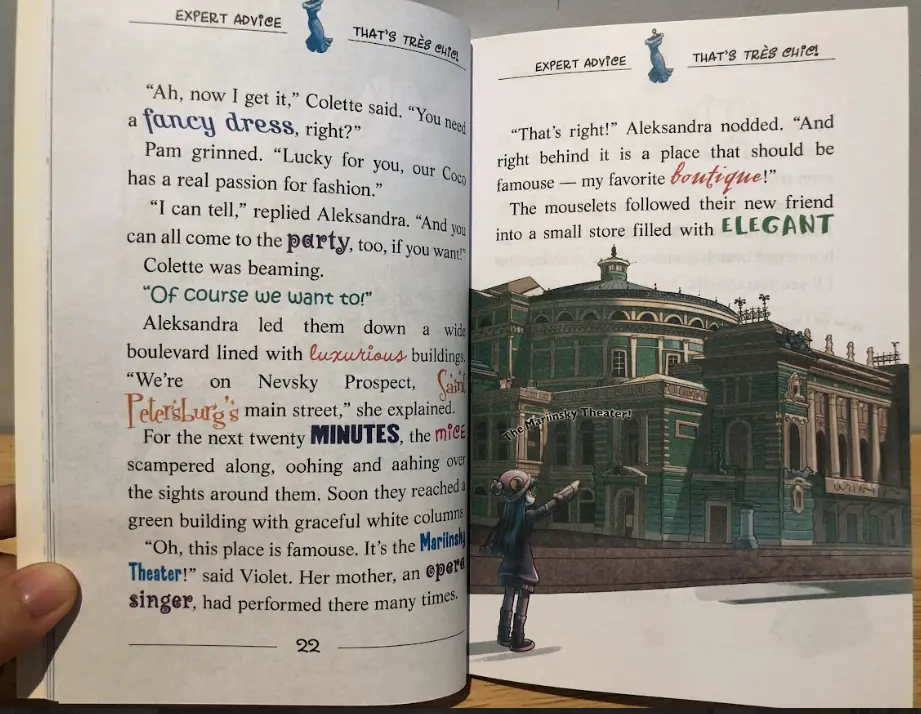 EXPERT ADVICE
THAT'S TRÈS CHIC!
"Ah, now I get it," Colette said. "You need
a fancy dress, right?"
Pam grinned. "Lucky for you, our Coco
has a real passion for fashion."
"I can tell," replied Aleksandra. "And you
can all come to the party, too, if you want!"
Colette was beaming.
"Of course we want to!"
Aleksandra led them down a wide
boulevard lined with luxurious buildings.
"We're on Nevsky Prospect, Saint
Petersburg's main street," she explained.
For the next twenty MINUTES, the mice
scampered along, oohing and aahing over
the sights around them. Soon they reached a
green building with graceful white columns
"Oh, this place is famouse. It's the Mariinsky
Theater!" said Violet. Her mother, an opera
singer, had performed there many times.
22
EXPERT ADVICE
THAT'S TRÈS CHIC!
"That's right!" Aleksandra nodded. "And
right behind it is a place that should be
famouse — my favorite boutique!"
The mouselets followed their new friend
into a small store filled with ELEGANT
The Mariinsky Theater!